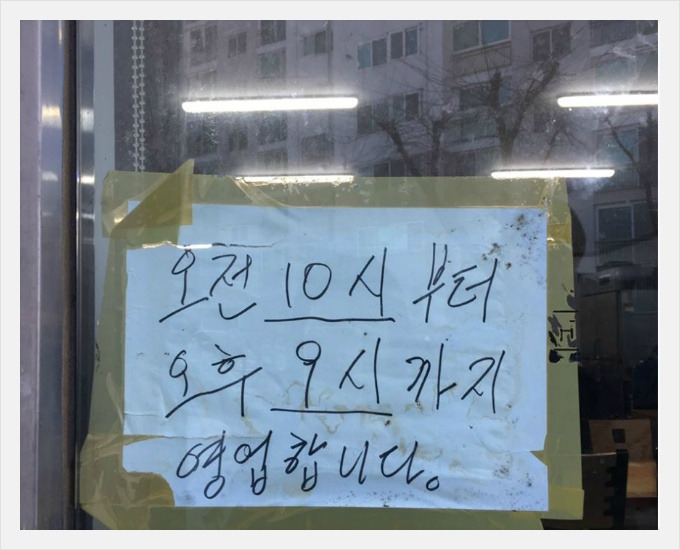 오전 10시 부터
오후 9시 까지
영업합니다.